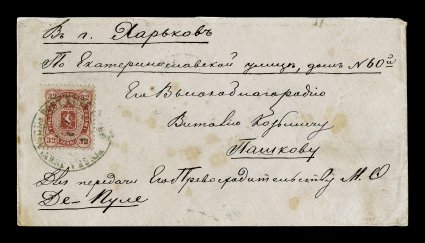 Въ г. Харьковъ
По Екатеринославской улицѣ, домъ № 60й
Его Высокоблагородію
Виталію Кузьмичу
Пашкову
Для передачи Его Превосходительству М. Ѳ
Де-Пуле
32 32
32 32